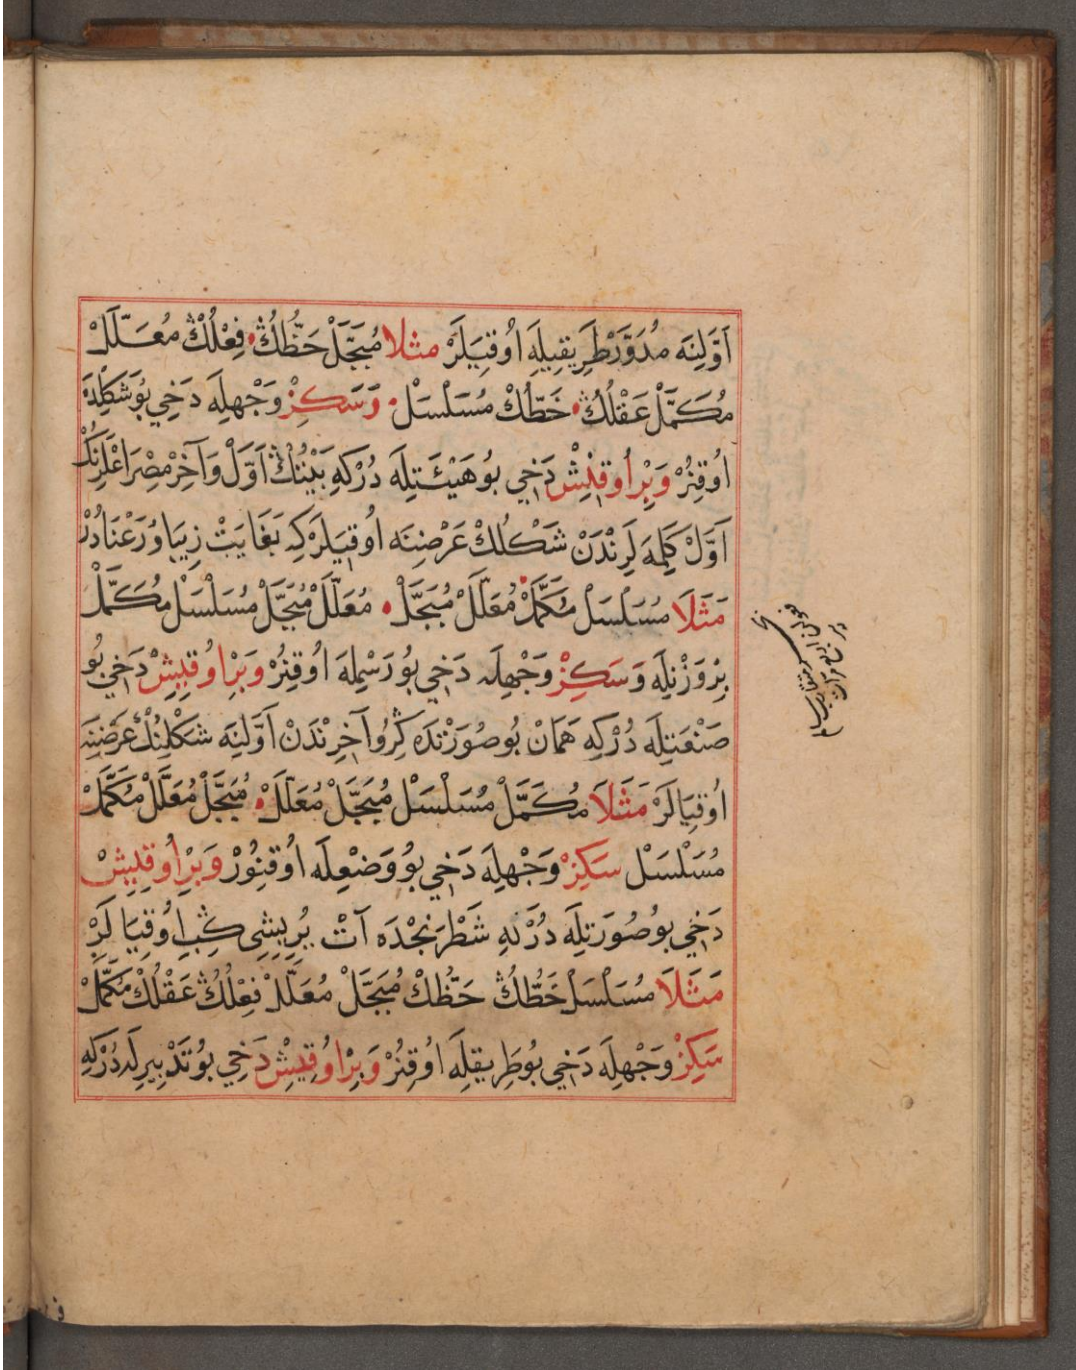 اَوَّلِنَه مُدَوَّرْ طَرِيقِيلَه اُوقِيَيلَرْ مثلا مُبَجَّلْ حَظُّكُڭ فِعْلُڭْ مُعَلَّلْ
مُكَمَّلْ عَقْلُڭْ خَطُّكْ مُسَلْسَلْ وَسَكِزْ وَجْهِلَه دَخِي بُو شَكِلْدَه
اُوقِنُرْ وَبِرْ اُوقِنِشْ دَخِي بُو هَيْئَتِلَه دُرْكِه بَيْتُڭْ اَوَّلْ وَآخِرْ مِصْرَاعْلَرِنُڭْ
اَوَّلْ كَلِمَه لَرِنْدَنْ شَكْلُكْ عَرْضِنَه اُوقِيَيلَرْ كِه بَغَايَتْ زِيبَا وُ رَعْنَادُرْ
مَثَلَا مُسَلْسَلْ مُكَمَّلْ مُعَلَّلْ مُبَجَّلْ مُعَلَّلْ مُبَجَّلْ مُسَلْسَلْ مُكَمَّلْ
بِرْ وَزْنِلَه وَسَكِزْ وَجْهِلَه دَخِي بُو رَسْمِلَه اُوقِنُرْ وَبِرْ اُوقِيِشْ دَخِي بُو
صَنْعَتِلَه دُرْكِه هَمَانْ بُو صُورَتْدَه كَڭرُو آخِرِنْدَنْ اَوَّلِنَه شَكْلِنُڭْ عَرْضِنَه
اُوقِيَالَرْ مَثَلَا مُكَمَّلْ مُسَلْسَلْ مُبَجَّلْ مُعَلَّلْ مُبَجَّلْ مُعَلَّلْ مُكَمَّلْ
مُسَلْسَلْ سَكِزْ وَجْهِلَه دَخِي بُو وَضْعِلَه اُوقِنُورْ وَبِرْ اُوقِيِشْ
دَخِي بُو صُورَتِلَه دُرْنَه شَطْرَنْجْدَه آتْ يُرِيِيشِى كِبِى اُوقِيَالَرْ
مَثَلَا مُسَلْسَلْ خَطُّكُڭْ حَظُّكْ مُبَجَّلْ مُعَلَّلْ فِعْلُكُڭْ عَقْلُكْ مُكَمَّلْ
سَكِزْ وَجْهِلَه دَخِي بُو طَرِيقِلَه اُوقِنُرْ وَبِرْ اُوقِيِشْ دَخِي بُو تَدْبِيرِلَه دُرْكِه